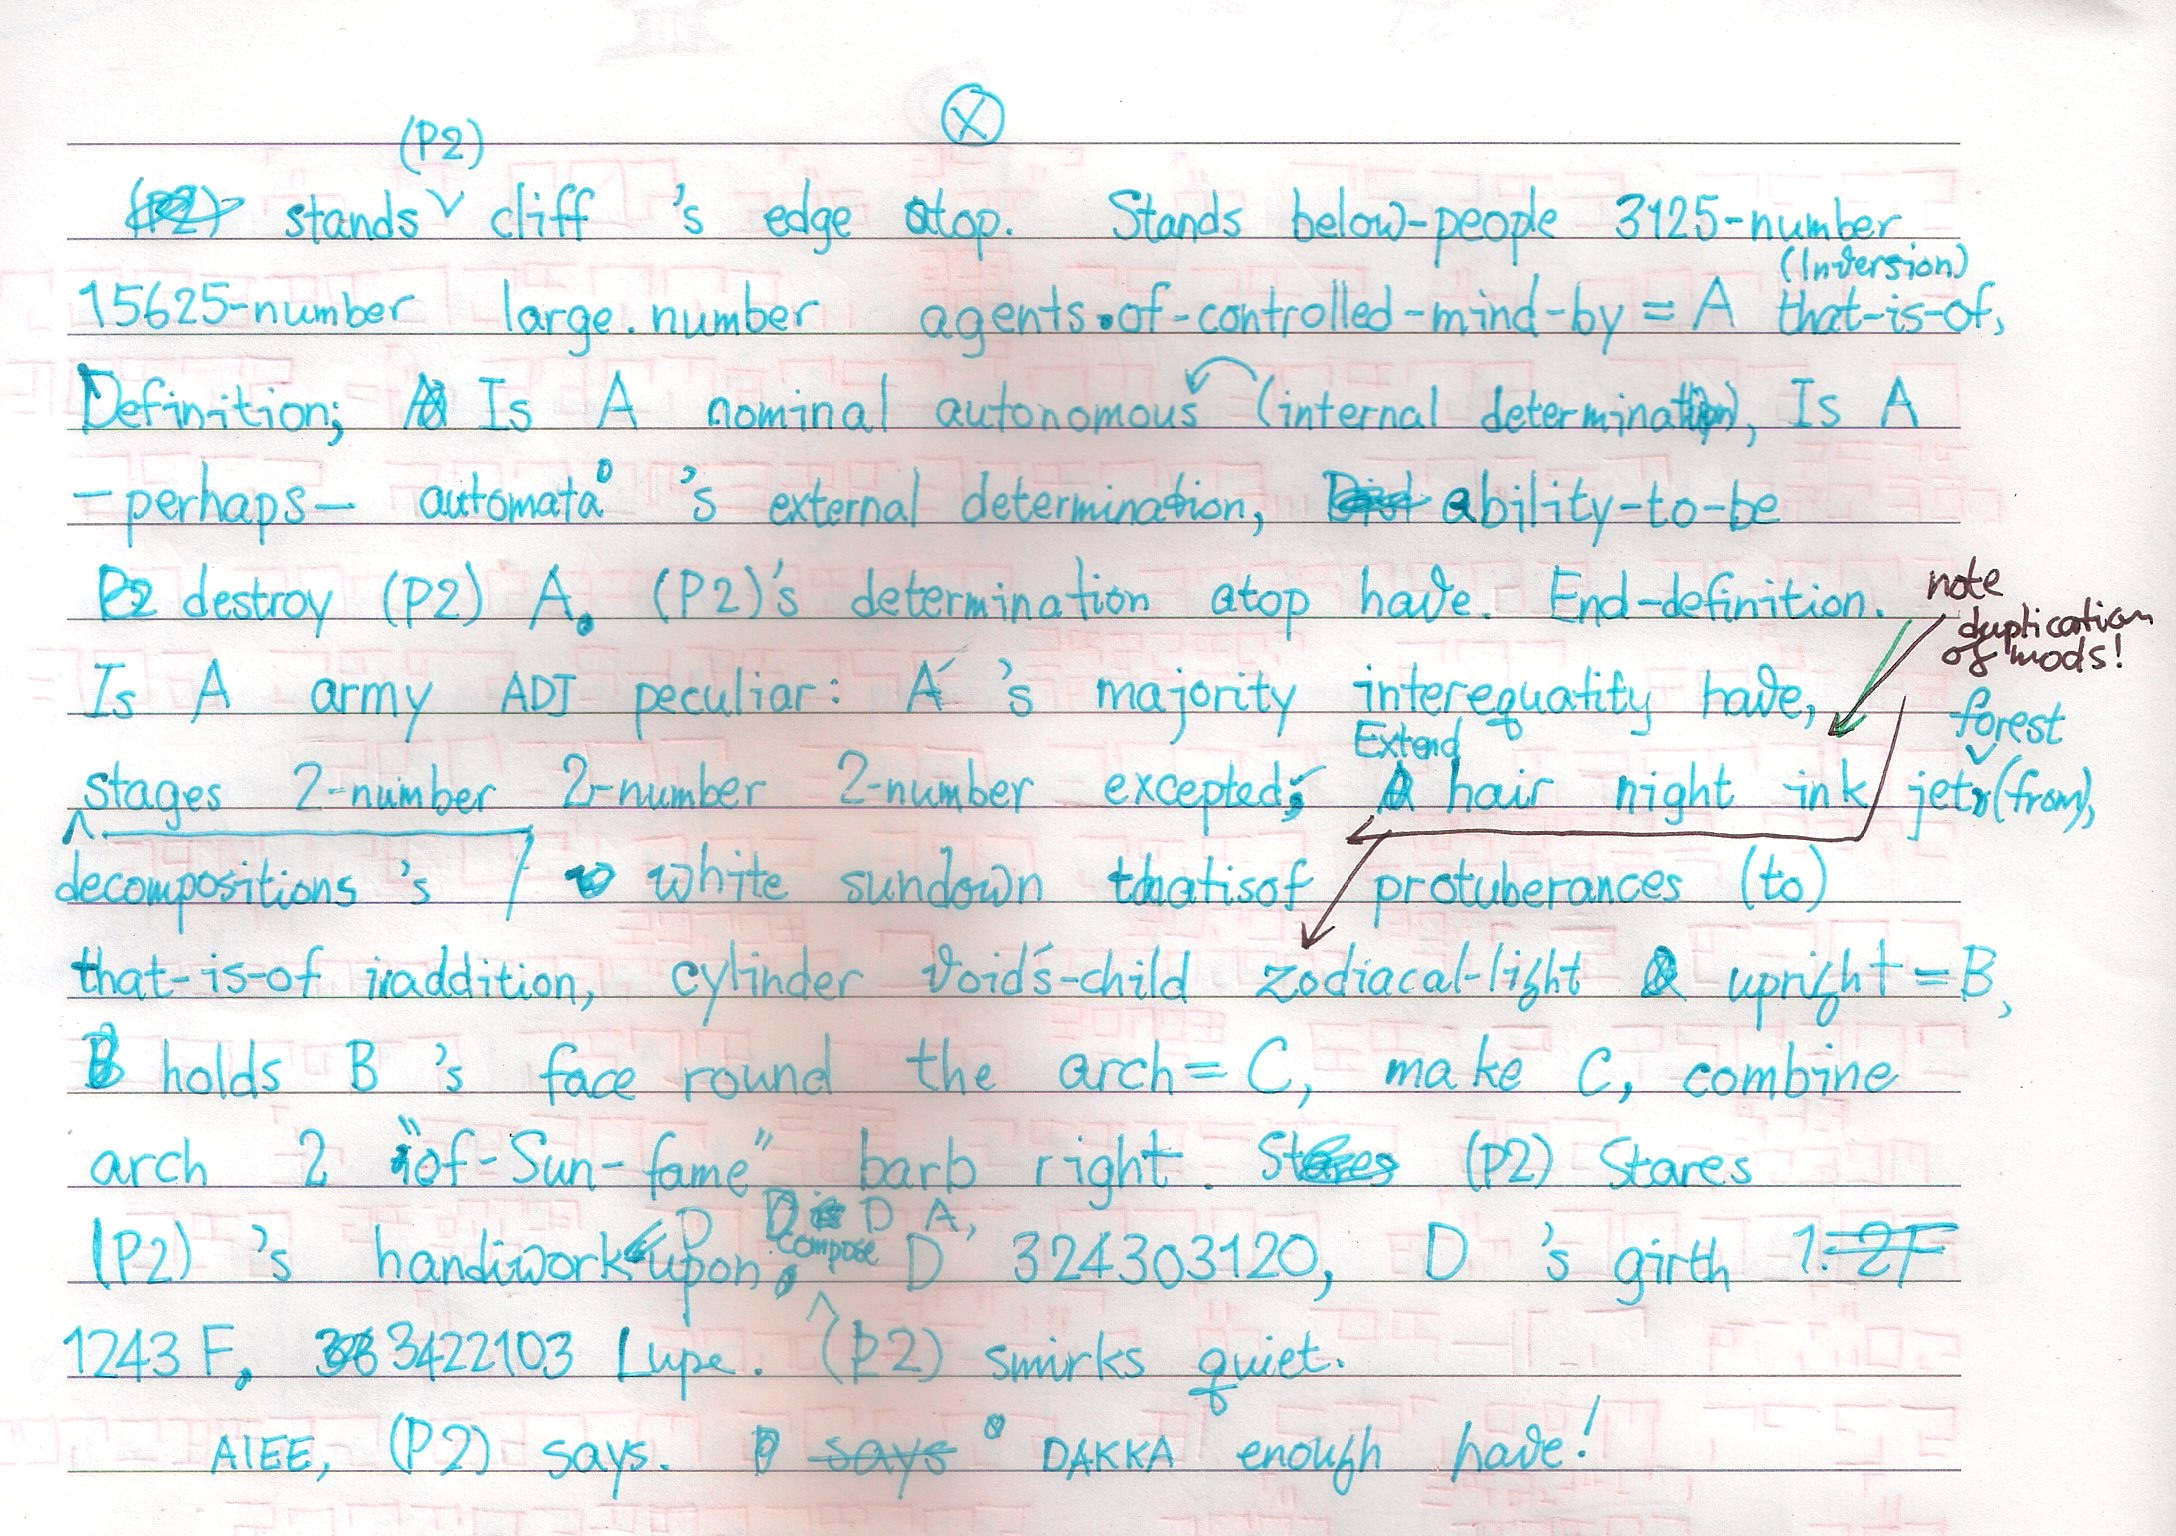 X
(P2)
stands cliff 's edge atop. Stands below-people 3125-number
(Inversion)
15625-number large.number agents.of-controlled-mind-by = A that-is-of,
Definition; Is A nominal autonomous (internal determination), Is A
-perhaps- automata 's external determination, ability-to-be
destroy (P2) A. (P2)'s determination atop have. End-definition.
note
duplication
of mods!
Is A army ADJ peculiar: A 's majority interequality have,
forest
Extend
stages 2-number 2-number 2-number excepted; hair night ink jet (from),
decompositions 's white sundown thatisof protuberances (to)
that-is-of inaddition, cylinder void's-child zodiacal-light upright = B,
B holds B 's face round the arch = C, make C, combine
arch 2 "of-Sun-fame" barb right. (P2) Stares
D D A,
compose
(P2) 's handiwork upon. D 324303120, D 's girth
1243 F, 3422103 Lupe. (P2) smirks quiet.
AIEE, (P2) says. DAKKA enough have!